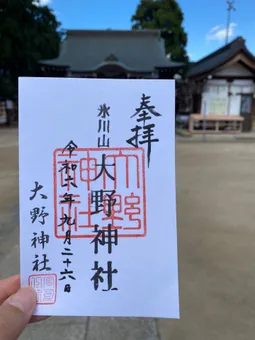 奉拝
氷川山
大野神社
令和六年九月二十六日
大野神社
大野
神社